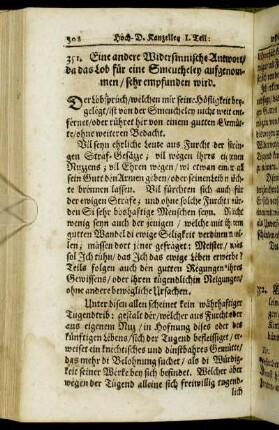 Hoch-D. Kanzelley I. Teil:
351. Eine andere Widersinnische Antwort/
da das Lob für eine Smeucheley aufgenom-
men / sehr empfunden wird.
Der Lobspruch/welchen mir seine Höfligkeit bey-
geleget/ist von der Smeucheley nicht weit ent-
fernet/oder rühret hir von einem gutten Gemüt-
te/ohne weiteren Bedacht.
Vil seyn ehrliche Leute aus Furcht der stren-
gen Straf-Gesätze; vil wegen ihres eigenen
Nuzzens; vil Ehren wegen/
sein Gutt den Armen giben/oder seinen Leib
brönnen lassen. Vil fürchten sich auch für
der ewigen Strafe; und ohne solche Furcht
den Si sehr boshaftige Menschen seyn. Nicht
wenig seyn auch der jenigen / welche mit ihrem
gutten Wandel di ewige Seligkeit verdinen
len, massen dort jener gefraget: Meister/ was
sol Ich tuhn/das Ich das ewige Leben erwerbe?
Teils folgen auch den gutten Regungen ihres
Gewissens/oder ihren tugendlichen Neigungen
ohne andere bewögliche Ursachen.
Unter disen allen scheinet kein wahrhaftiger
Tugendtrib: gestalt der/welcher aus Furcht oder
aus eigenem Nuz/in Hofnung dises oder des
künftigen Lebens/sich der Tugend befleissiget/er-
weiset ein knechtisches und dinstbahres Gemütte/
das mehr di Belohnung suchet/als di Würdig-
keit seiner Werke bey sich befindet. Welcher aber
wegen der Tugend alleine sich freiwillig tugend-
lich